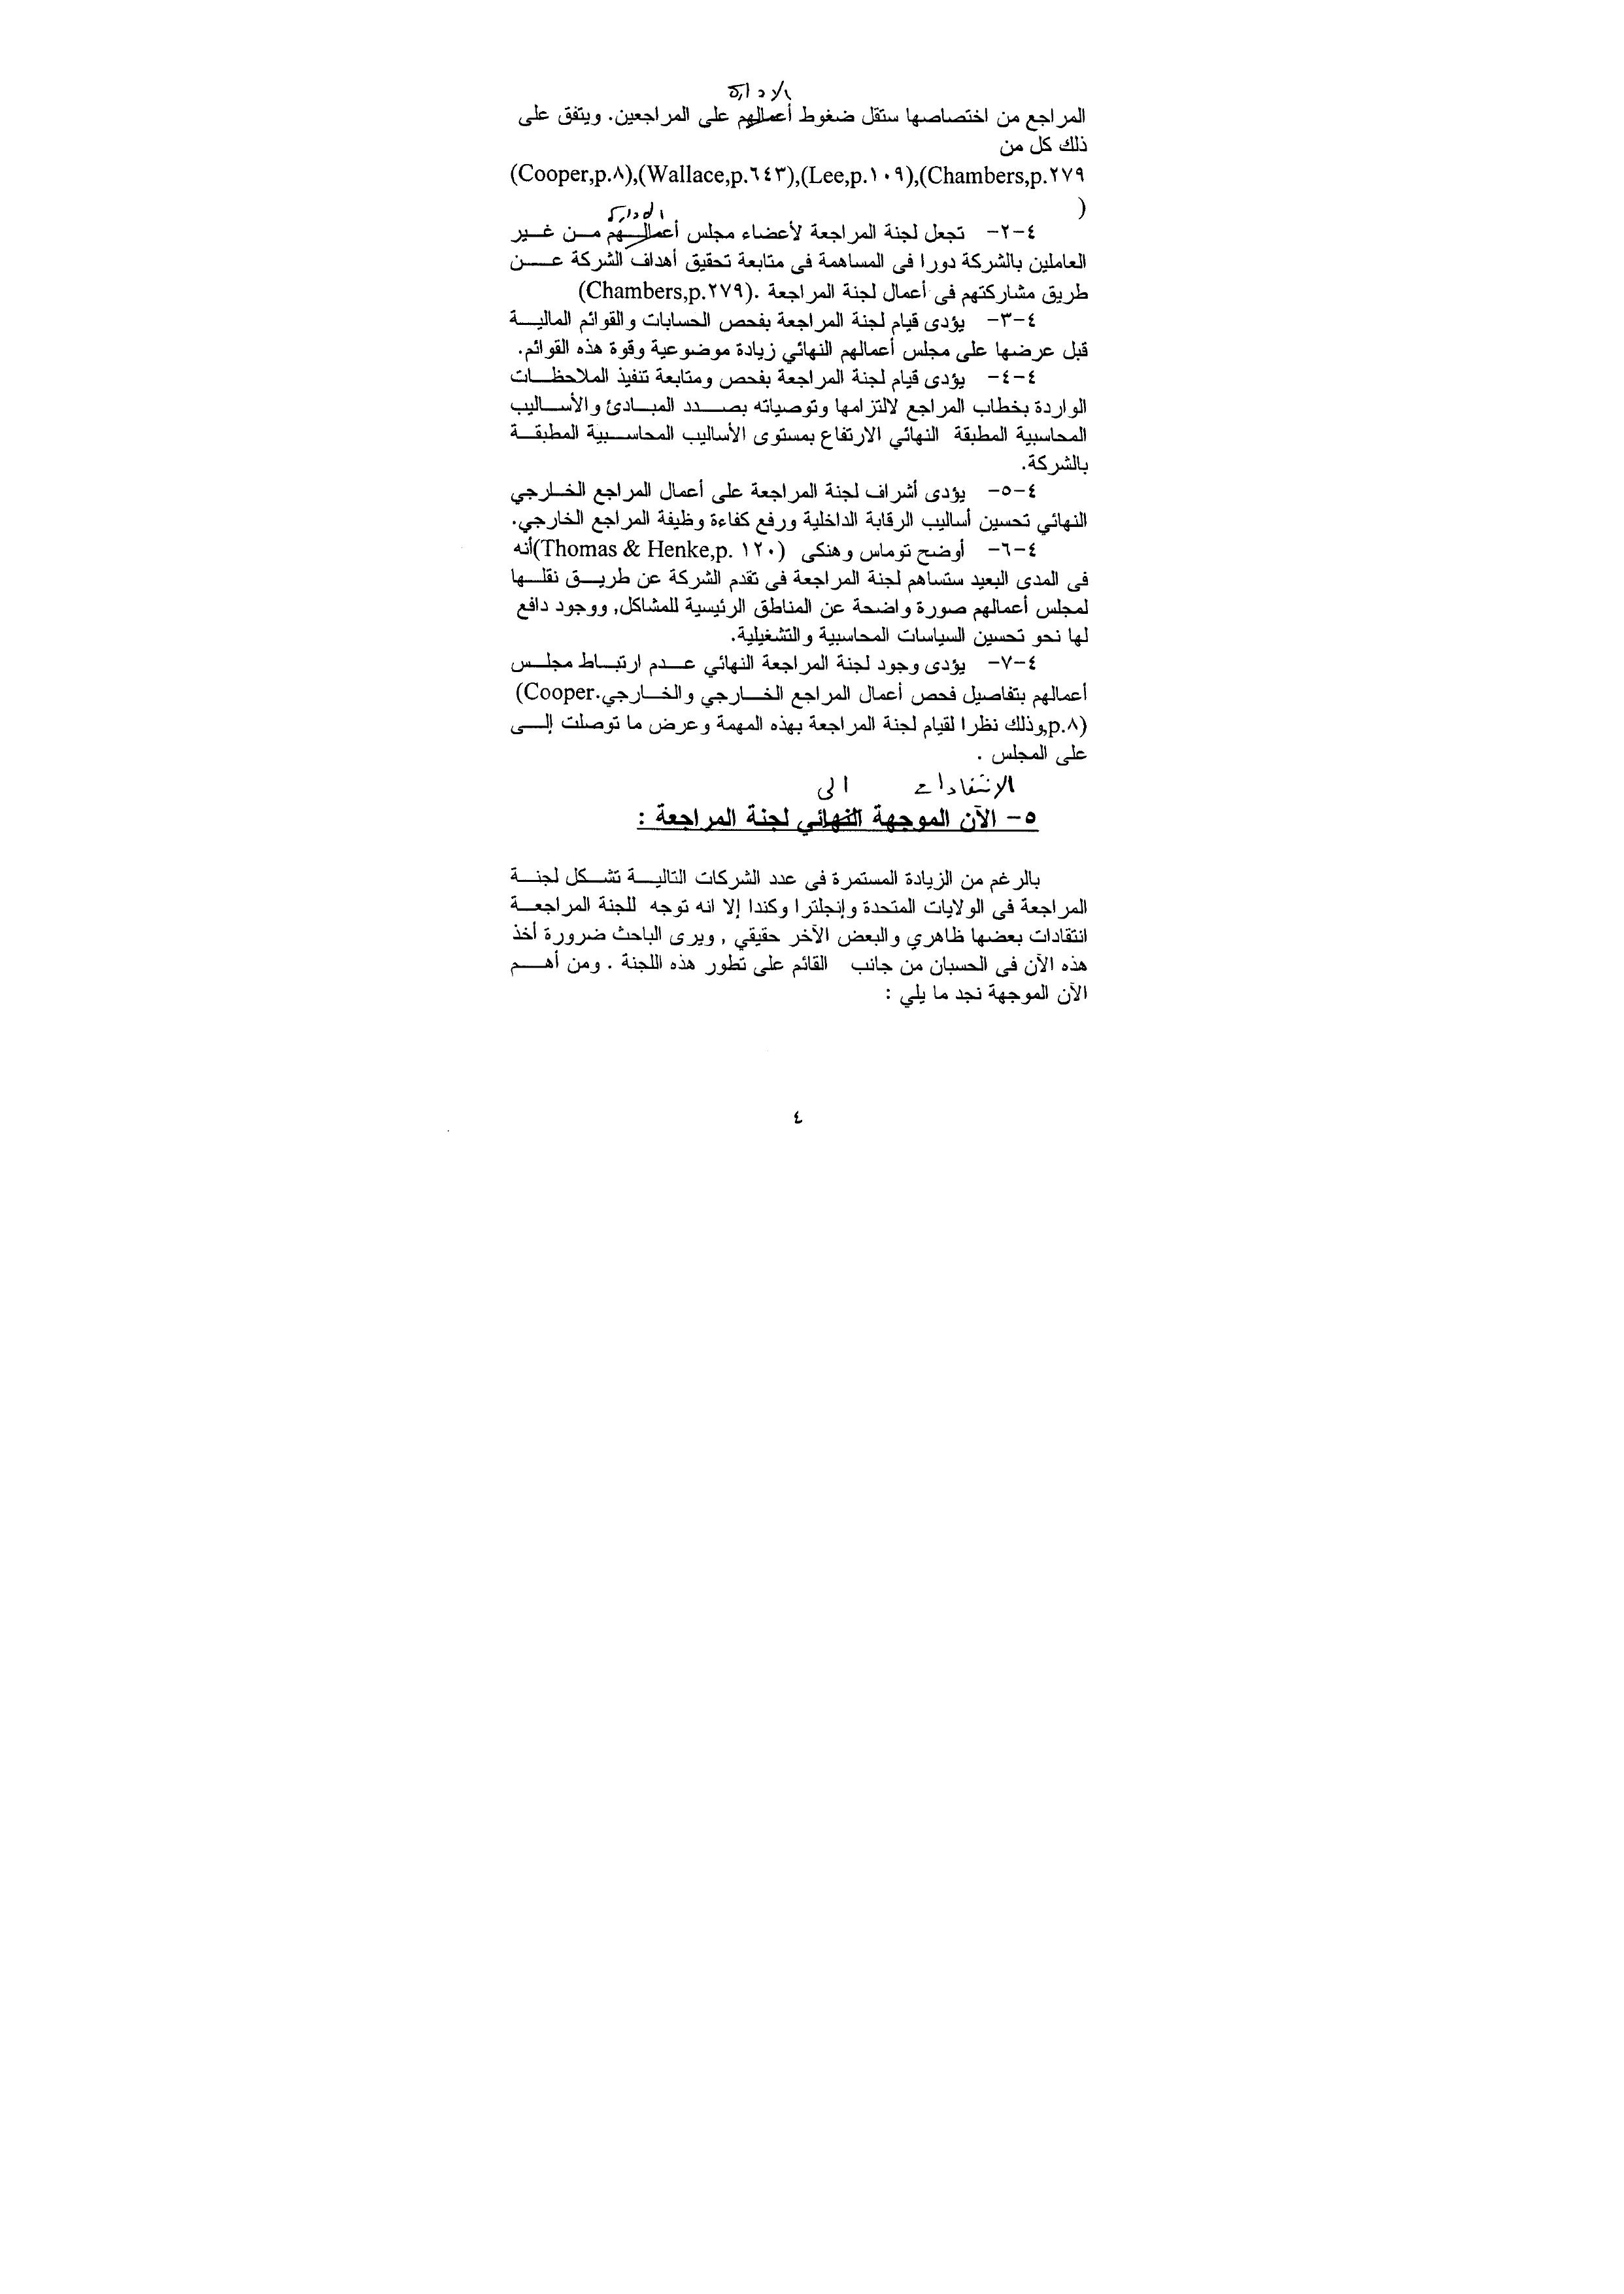 الادارة
المراجع من اختصاصها ستقل ضغوط أعمالهم على المراجعين. ويتفق على
ذلك كل من
(Cooper,p.٨),(Wallace,p.٦٤٣),(Lee,p.١٠٩),(Chambers,p.٢٧٩
(
الادارة
٤-٢- تجعل لجنة المراجعة لأعضاء مجلس أعمالهم من غير
العاملين بالشركة دورا فى المساهمة فى متابعة تحقيق أهداف الشركة عن
طريق مشاركتهم فى أعمال لجنة المراجعة .(Chambers,p.٢٧٩)
٤-٣- يؤدى قيام لجنة المراجعة بفحص الحسابات والقوائم المالية
قبل عرضها على مجلس أعمالهم النهائي زيادة موضوعية وقوة هذه القوائم.
٤-٤- يؤدى قيام لجنة المراجعة بفحص ومتابعة تنفيذ الملاحظات
الواردة بخطاب المراجع لالتزامها وتوصياته بصدد المبادئ والأساليب
المحاسبية المطبقة النهائي الارتفاع بمستوى الأساليب المحاسبية المطبقة
بالشركة.
٤-٥- يؤدى أشراف لجنة المراجعة على أعمال المراجع الخارجي
النهائي تحسين أساليب الرقابة الداخلية ورفع كفاءة وظيفة المراجع الخارجي.
٤-٦- أوضح توماس وهنكى (Thomas & Henke,p. ١٢٠)أنه
فى المدى البعيد ستساهم لجنة المراجعة فى تقدم الشركة عن طريق نقلها
لمجلس أعمالهم صورة واضحة عن المناطق الرئيسية للمشاكل, ووجود دافع
لها نحو تحسين السياسات المحاسبية والتشغيلية.
٤-٧- يؤدى وجود لجنة المراجعة النهائي عدم ارتباط مجلس
أعمالهم بتفاصيل فحص أعمال المراجع الخارجي والخارجي.Cooper)
(p.٨,وذلك نظرا لقيام لجنة المراجعة بهذه المهمة وعرض ما توصلت إلى
على المجلس .
الانتقادات الى
٥- الآن الموجهة النهائي لجنة المراجعة :
بالرغم من الزيادة المستمرة فى عدد الشركات التالية تشكل لجنة
المراجعة فى الولايات المتحدة وإنجلترا وكندا إلا انه توجه للجنة المراجعة
انتقادات بعضها ظاهري والبعض الآخر حقيقي , ويرى الباحث ضرورة أخذ
هذه الآن فى الحسبان من جانب القائم على تطور هذه اللجنة . ومن أهم
الآن الموجهة نجد ما يلي :
٤